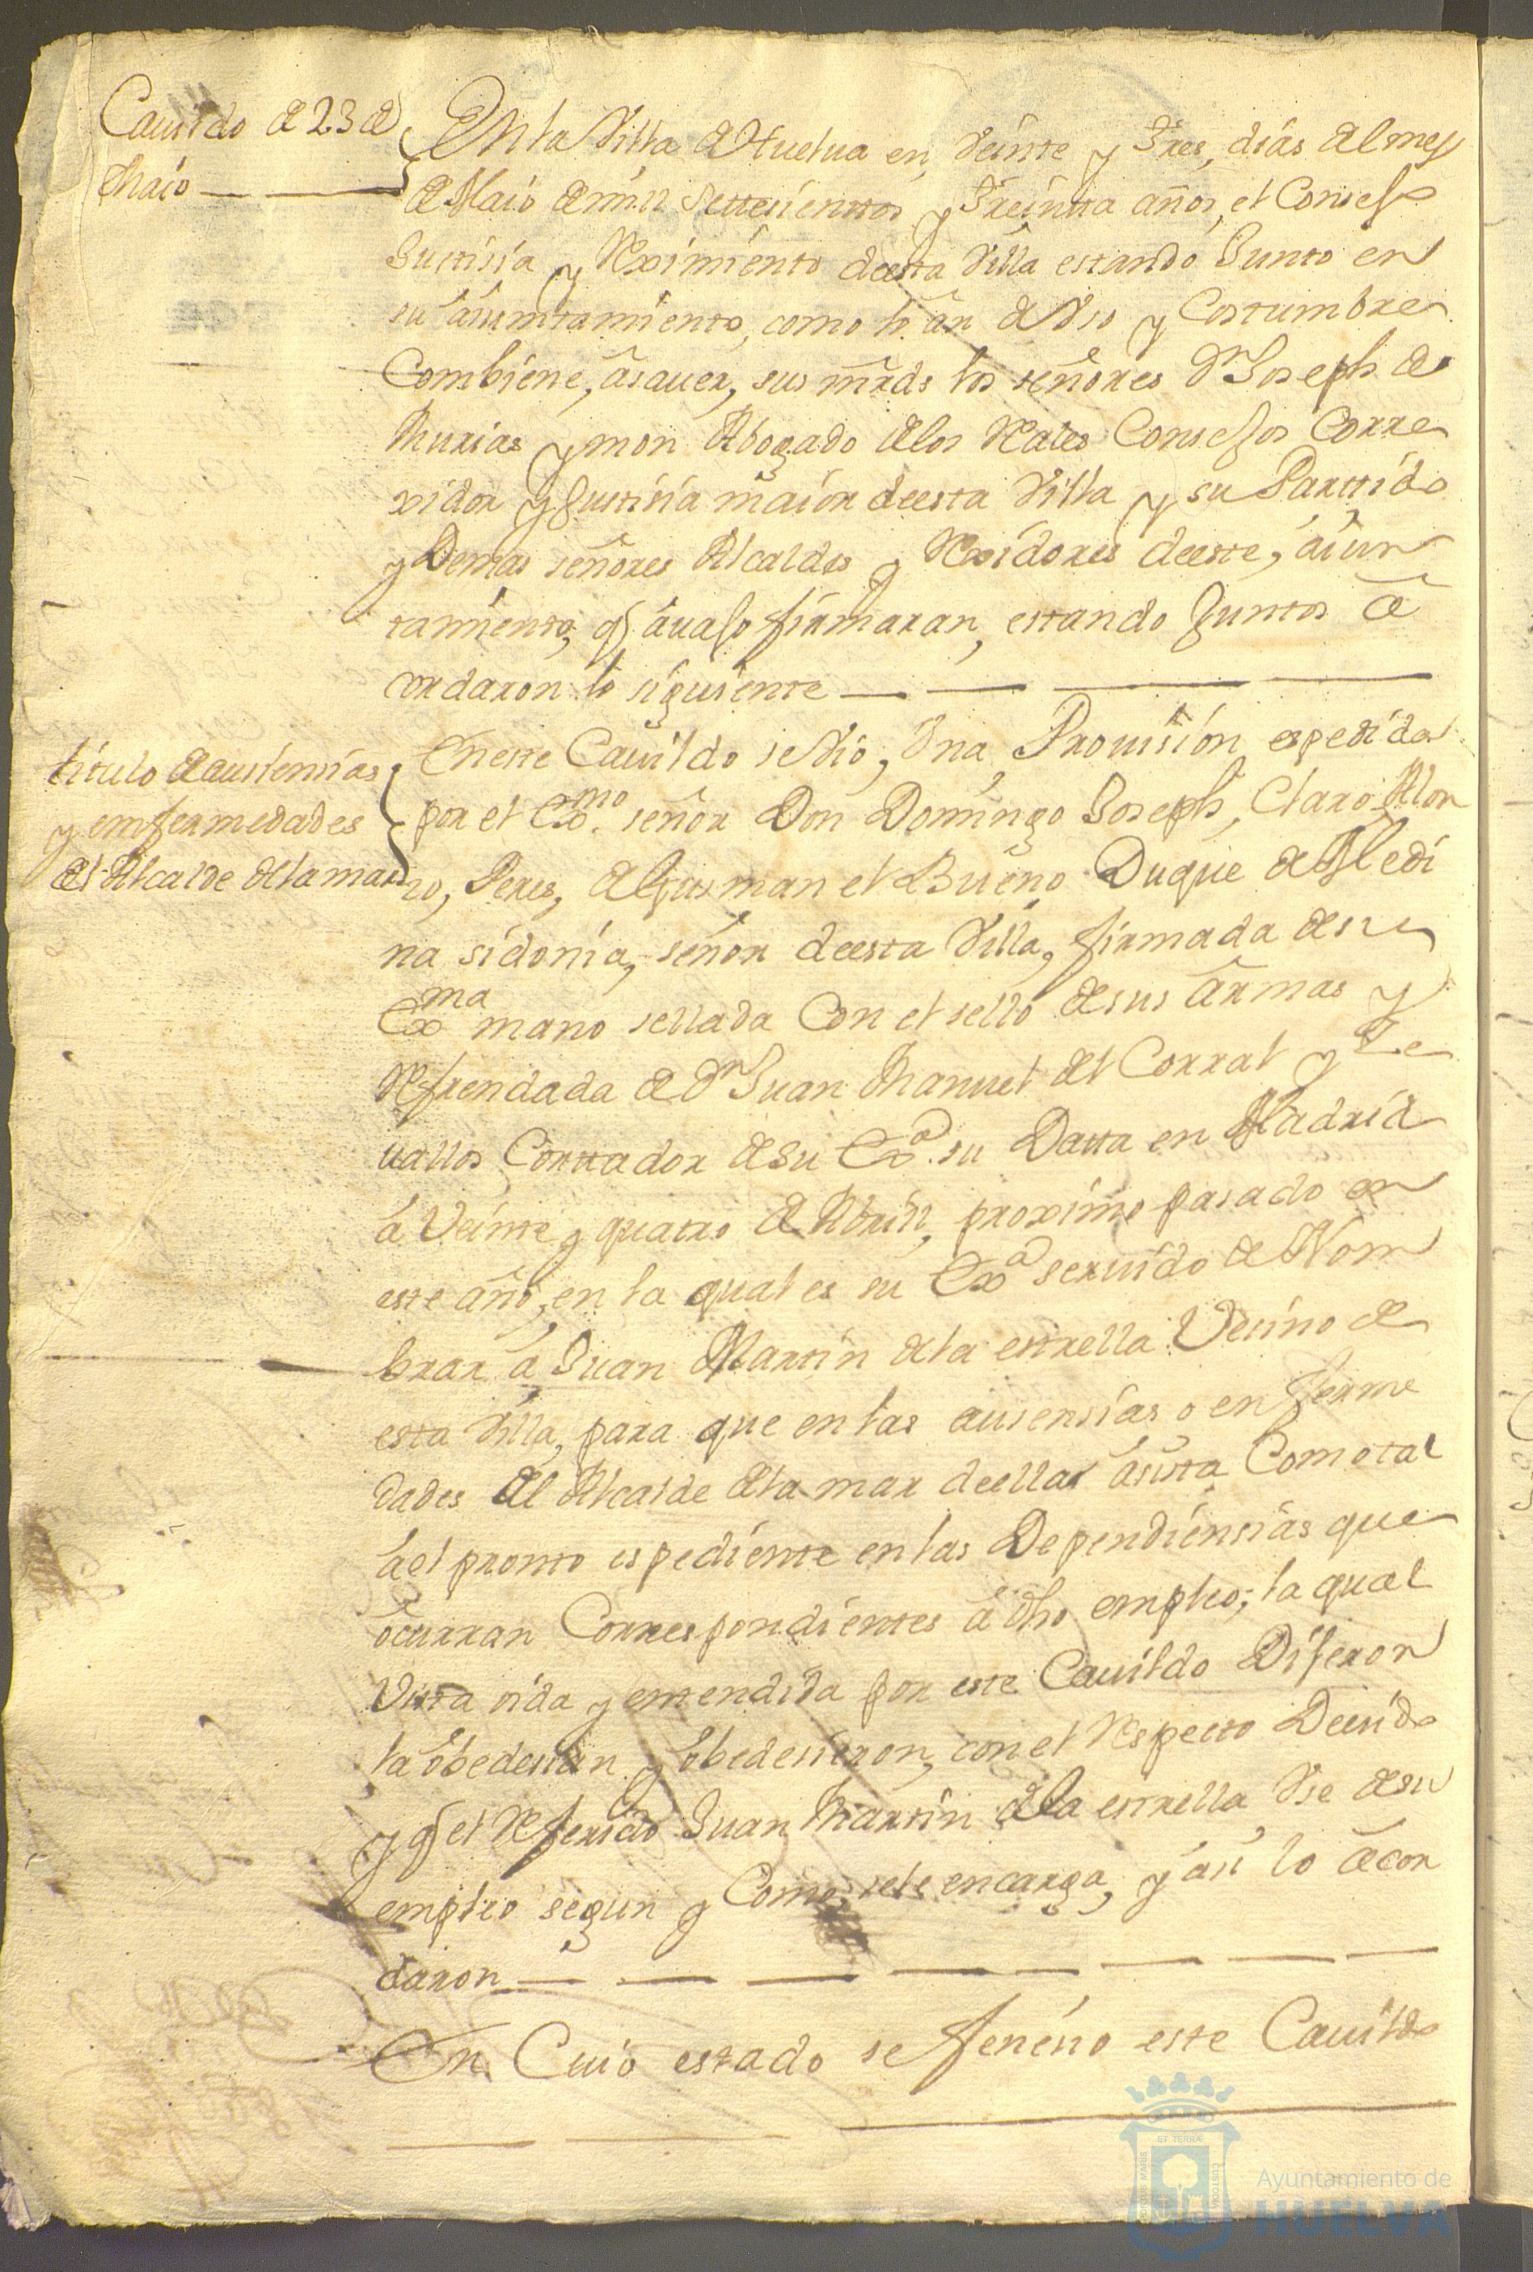 Cauildo de 23 de
Maio
En la Villa de Huelua en, Veinte y Tres, dias del mes
de Maio de mill settesienttos y Treintta años, el Consejo
Justisia y Reximiento deesta Villa estando Junto en
su aiuntamiento, como lo an de Vso y Costumbre
Combiene, asauer, sus mrds los señores Dn Joseph de
Murias ymon Abogado de los Reales Consejos Corre
xidor y Justisia maior deesta Villa y su Parttido
y Demas señores Alcaldes y Rexidores deeste, aiun
tamiento, q auajo firmaran, estando Juntos a
cordaron lo siguiente
titulo de ausiensias
y emfermedades
del Alcalde de la mar
En este Cauildo se Vio, Vna, Prouision espedida
por el Exmo. señor Don Domingo Joseph, Claro Alon
zo, Peres, de Gusman el Bueno Duque de Medi
na sidonia, señor deesta Villa, firmada de su
Exma mano sellada Con el sello de sus armas y
Refrendada de Dn Juan Manuel del Corral y Ze
uallos Conttador de Su Exa. su Datta en Madrid
a Veinte y quatro de Abrill, proximo pasado en
este año, en la qual es su Exa seruido de Nom
brar a Juan Martin de la estrella Vesino de
esta Villa, para que en las ausensias o enferme
dades del Alcalde de la mar deella asista Como tal
a el pronto espediente en las Dependiensias que
ocurran Correspondientes a dho empleo; la qual
Vista oida y entendida por este Cauildo Dijeron
la obedesian y obedesieron, con el Respecto Deuido
y q el Referido Juan Martin de la estrella Vse de su
empleo segun y Como se le encarga, y asi lo acor
daron
En Cuio estado se fenesio este Cauildo
ET TERRÆ
PORTUS MARIS
CUSTODIA
Ayuntamiento de
HUELVA